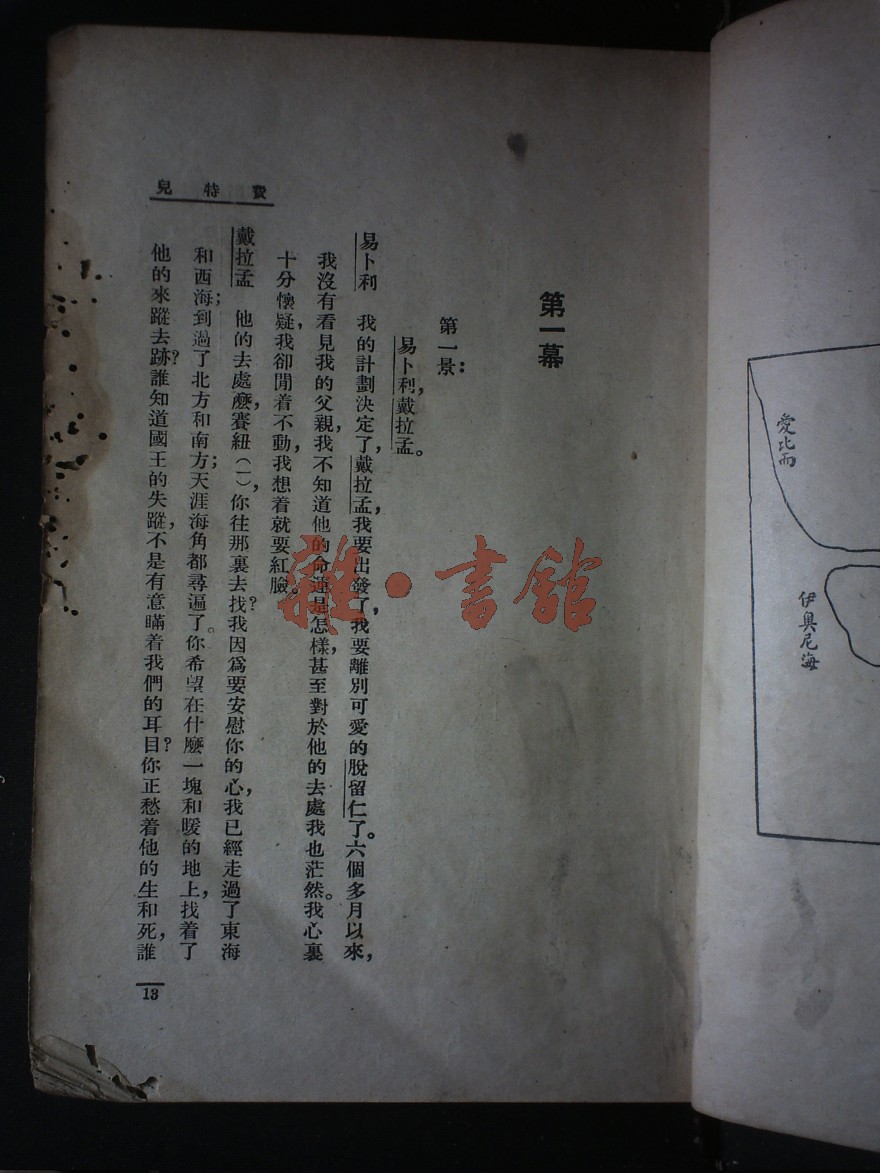 愛比而
伊奧尼海
第一幕
第一景：
易卜利，戴拉孟。
易卜利　我的計劃決定了，戴拉孟，我要出發了，我要離別可愛的脫留仁了。六個多月以來，
我沒有看見我的父親，我不知道他的命運是怎樣，甚至對於他的去處我也茫然。我心裏
十分懷疑，我卻閒着不動，我想着就要紅臉。
戴拉孟　他的去處麼，賽紐（一），你往那裏去找？我因爲要安慰你的心，我已經走過了東海
和西海；到過了北方和南方；天涯海角都尋遍了。你希望在什麼一塊和暖的地上，找着了
他的來蹤去跡？誰知道國王的失蹤，不是有意瞞着我們的耳目？你正愁着他的生和死，誰
費特兒
13
雜·書館